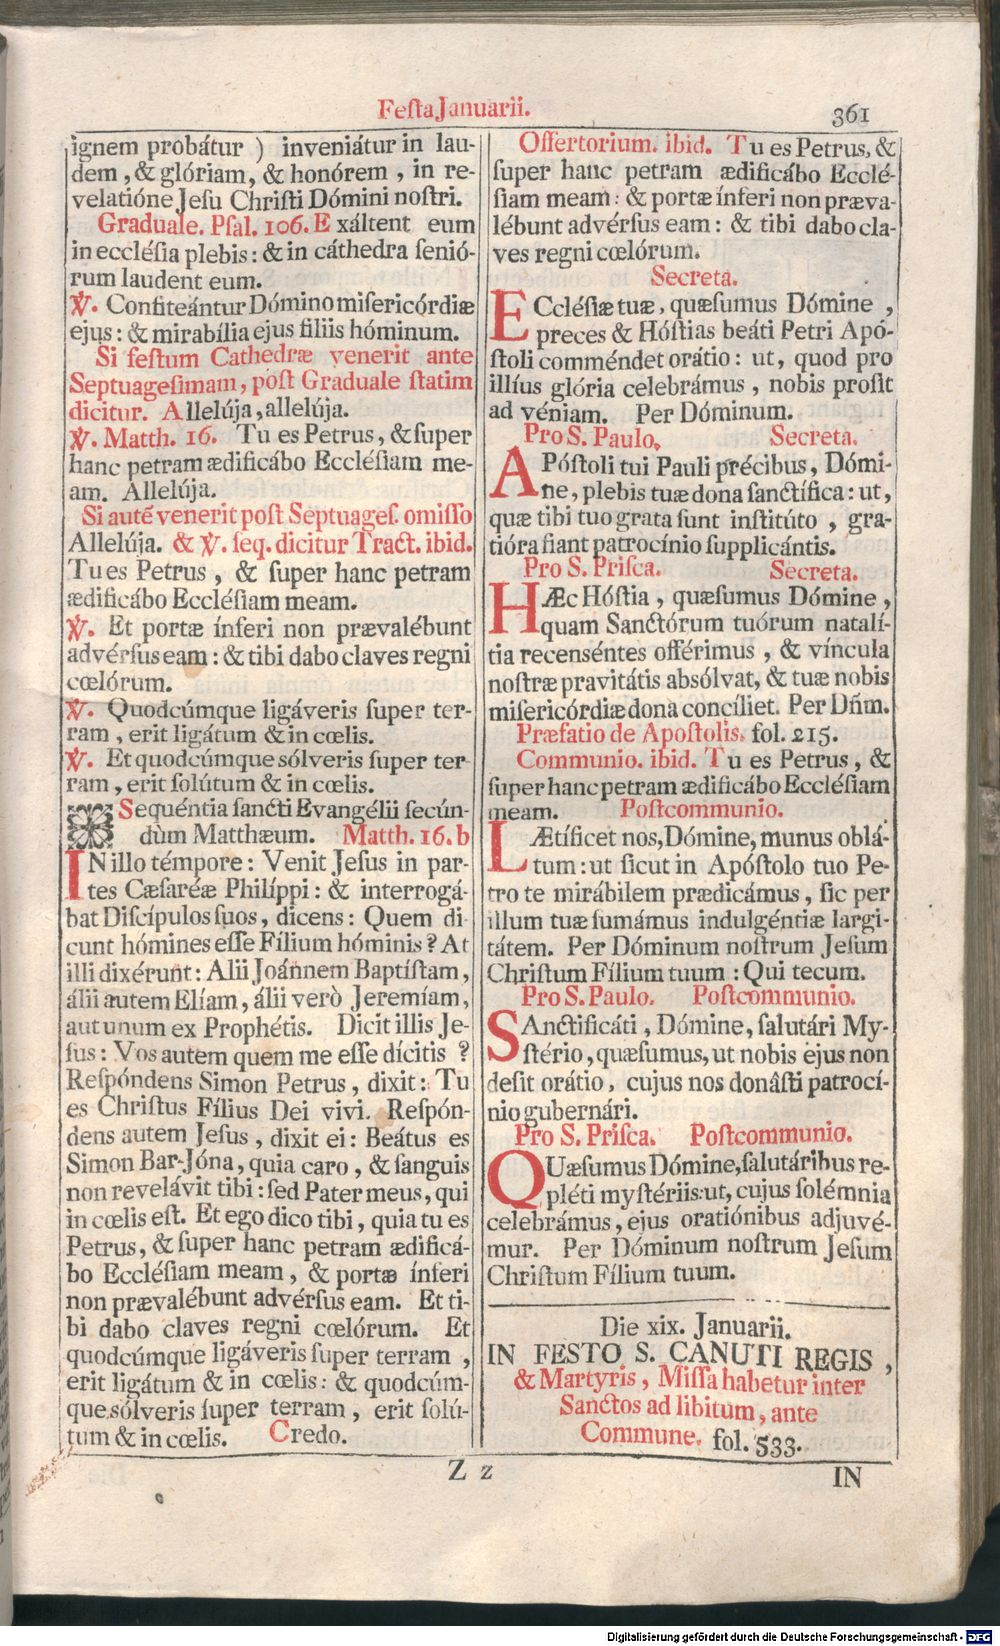 Feſta Januarii.
361
ignem probátur ) inveniátur in lau-
dem , & glóriam, & honórem , in re-
velatióne Jeſu Chriſti Dómini noſtri.
Graduale. Pſal. 106. E xáltent eum
in eccléſia plebis : & in cáthedra ſenió-
rum laudent eum.
℣. Confiteántur Dómino miſericórdiæ
ejus : & mirabília ejus filiis hóminum.
Si feſtum Cathedræ venerit ante
Septuageſimam, poſt Graduale ſtatim
dicitur. Allelúja , allelúja.
℣. Matth. 16. Tu es Petrus , & ſuper
hanc petram ædificábo Eccléſiam me-
am. Allelúja.
Si autē venerit poſt Septuageſ. omiſſo
Allelúja. & ℣. ſeq. dicitur Tract. ibid.
Tu es Petrus , & ſuper hanc petram
ædificábo Eccléſiam meam.
℣. Et portæ ínferi non prævalébunt
advérſus eam : & tibi dabo claves regni
cœlórum.
℣. Quodcúmque ligáveris ſuper ter-
ram , erit ligátum & in cœlis.
℣. Et quodcúmque sólveris ſuper ter
ram , erit ſolútum & in cœlis.
Sequéntia ſancti Evangélii ſecún-
dùm Matthæum. Matth. 16. b
IN illo témpore : Venit Jeſus in par-
tes Cæſaréæ Philíppi : & interrogá-
bat Diſcípulos ſuos , dicens : Quem di
cunt hómines eſſe Fílium hóminis ? At
illi dixérunt : Alii Joánnem Baptíſtam ,
álii autem Elíam , álii verò Jeremíam ,
aut unum ex Prophétis. Dicit illis Je-
ſus : Vos autem quem me eſſe dícitis ?
Reſpóndens Simon Petrus , dixit : Tu
es Chriſtus Fílius Dei vivi. Reſpón-
dens autem Jeſus , dixit ei : Beátus es
Simon Bar-Jóna , quia caro , & ſanguis
non revelávit tibi : ſed Pater meus , qui
in cœlis eſt. Et ego dico tibi , quia tu es
Petrus , & ſuper hanc petram ædificá-
bo Eccléſiam meam , & portæ ínferi
non prævalébunt advérſus eam. Et ti-
bi dabo claves regni cœlórum. Et
quodcúmque ligáveris ſuper terram ,
erit ligátum & in cœlis : & quodcúm-
que sólveris ſuper terram , erit ſolú-
tum & in cœlis. Credo.
Offertorium. ibid. Tu es Petrus, &
ſuper hanc petram ædificábo Ecclé-
ſiam meam : & portæ ínferi non præva-
lébunt advérſus eam : & tibi dabo cla-
ves regni cœlórum.
Secreta.
ECcléſiæ tuæ , quæſumus Dómine ,
preces & Hóſtias beáti Petri Apó-
ſtoli comméndet orátio : ut , quod pro
illíus glória celebrámus , nobis proſit
ad véniam. Per Dóminum.
Pro S. Paulo, Secreta.
APóſtoli tui Pauli précibus , Dómi-
ne , plebis tuæ dona ſanctífica : ut ,
quæ tibi tuo grata ſunt inſtitúto , gra-
tióra fiant patrocínio ſupplicántis.
Pro S. Priſca. Secreta.
HÆc Hóſtia , quæſumus Dómine ,
quam Sanctórum tuórum natalí-
tia recenséntes offérimus , & víncula
noſtræ pravitátis absólvat, & tuæ nobis
miſericórdiæ dona concíliet. Per Dn̄m.
Præfatio de Apoſtolis. fol. 215.
Communio. ibid. Tu es Petrus , &
ſuper hanc petram ædificábo Eccléſiam
meam. Poſtcommunio.
LÆtíficet nos, Dómine, munus oblá-
tum : ut ſicut in Apóſtolo tuo Pe-
tro te mirábilem prædicámus , ſic per
illum tuæ ſumámus indulgéntiæ largi-
tátem. Per Dóminum noſtrum Jeſum
Chriſtum Fílium tuum : Qui tecum.
Pro S. Paulo. Poſtcommunio.
SAnctificáti , Dómine, ſalutári My-
ſtério , quæſumus, ut nobis ejus non
deſit orátio , cujus nos donâſti patrocí-
nio gubernári.
Pro S. Priſca. Poſtcommunio.
QUæſumus Dómine, ſalutáribus re-
pléti myſtériis: ut, cujus ſolémnia
celebrámus , ejus oratiónibus adjuvé-
mur. Per Dóminum noſtrum Jeſum
Chriſtum Fílium tuum.
Die xix. Januarii.
IN FESTO S. CANUTI REGIS ,
& Martyris , Miſſa habetur inter
Sanctos ad libitum , ante
Commune. fol. 533.
Z z
IN
Digitalisierung gefördert durch die Deutsche Forschungsgemeinschaft - DFG